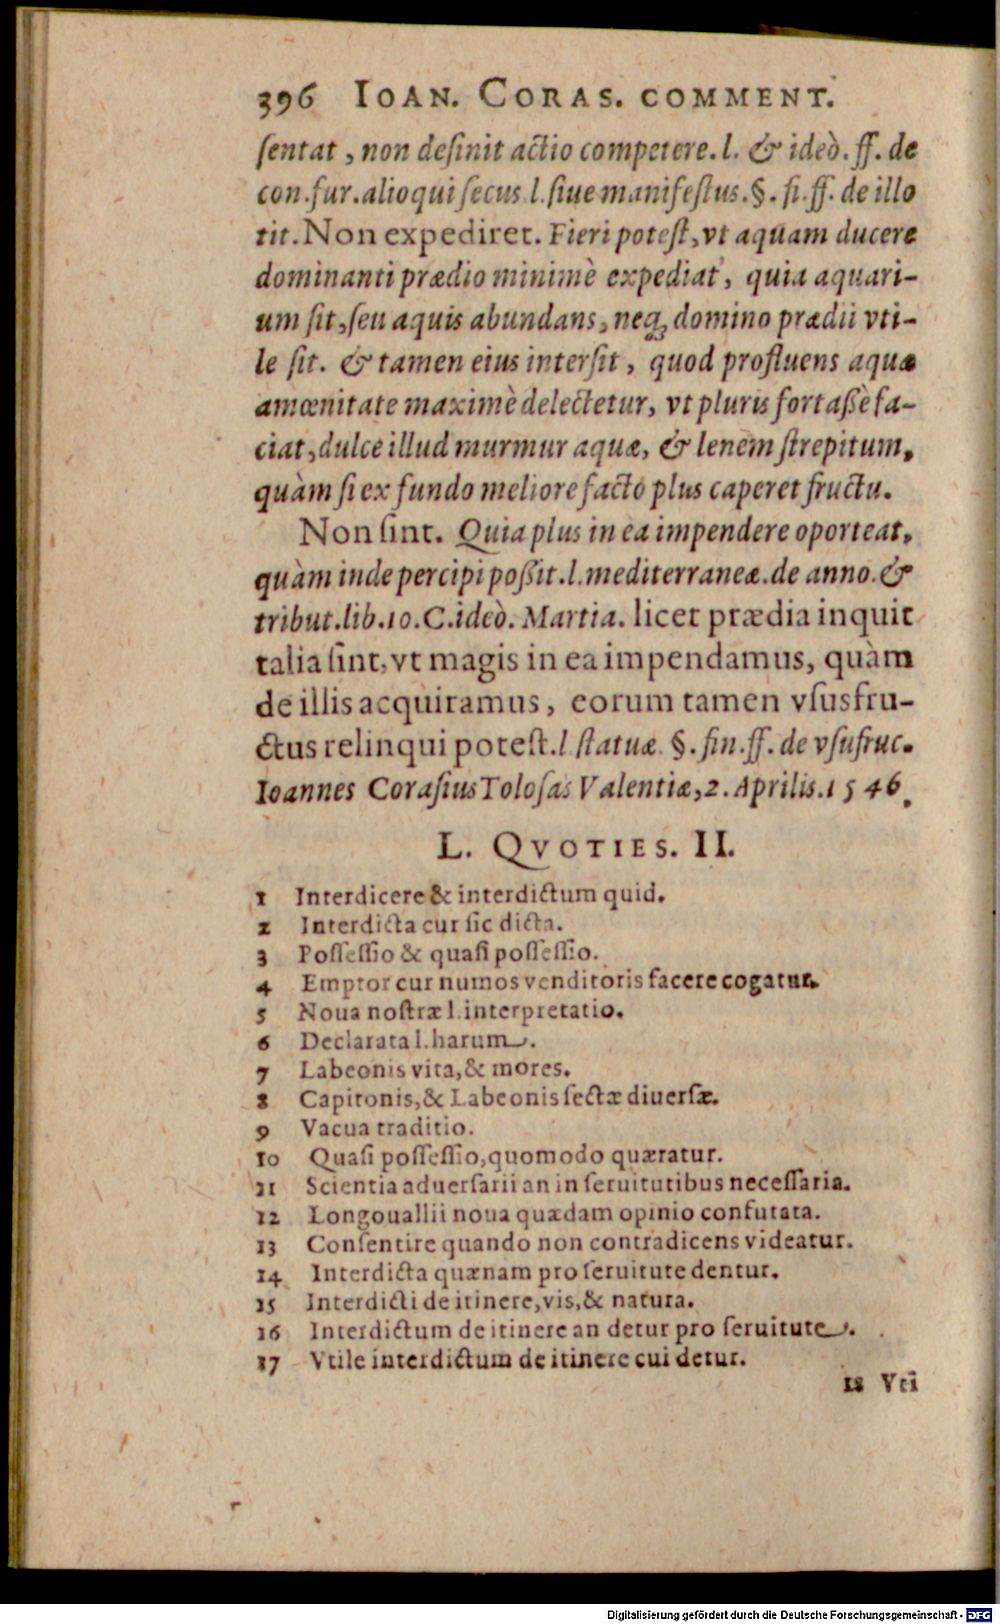 396 IOAN. CORAS. COMMENT.
ſentat, non deſinit actio competere. l. & ideò. ff. de
con. fur. alioqui ſecus l. ſiue manifeſtus. §. ſi. ff. de illo
tit. Non expediret. Fieri poteſt, vt aquam ducere
dominanti prædio minimè expediat, quia aquari-
um ſit, ſeu aquis abundans, neq; domino prædii vti-
le ſit. & tamen eius interſit, quod profluens aquæ
amœnitate maximè delectetur, vt pluris fortaßè fa-
ciat, dulce illud murmur aquæ, & lenem ſtrepitum,
quàm ſi ex fundo meliore facto plus caperet fructu.
Non ſint. Quia plus in ea impendere oporteat,
quàm inde percipi poßit. l. mediterraneæ. de anno. &
tribut. lib. 10. C. ideò. Martia. licet prædia inquit
talia ſint, vt magis in ea impendamus, quàm
de illis acquiramus, eorum tamen vſusfru-
ctus relinqui poteſt. l ſtatuæ. §. fin. ff. de vſufruc.
Ioannes Coraſius Toloſas Valentiæ, 2. Aprilis. 1546.
L. QVOTIES. II.
1 Interdicere & interdictum quid.
2 Interdicta cur ſic dicta.
3 Poſſeſſio & quaſi poſſeſſio.
4 Emptor cur numos venditoris facere cogatur.
5 Noua noſtræ l. interpretatio.
6 Declarata l. harum.
7 Labeonis vita, & mores.
8 Capitonis, & Labeonis ſectæ diuerſæ.
9 Vacua traditio.
10 Quaſi poſſeſſio, quomodo quæratur.
11 Scientia aduerſarii an in ſeruitutibus neceſſaria.
12 Longouallii noua quædam opinio confutata.
13 Conſentire quando non contradicens videatur.
14 Interdicta quænam pro ſeruitute dentur.
15 Interdicti de itinere, vis, & natura.
16 Interdictum de itinere an detur pro ſeruitute.
17 Vtile interdictum de itinere cui detur.
18 Vti
Digitalisierung gefördert durch die Deutsche Forschungsgemeinschaft - DFG